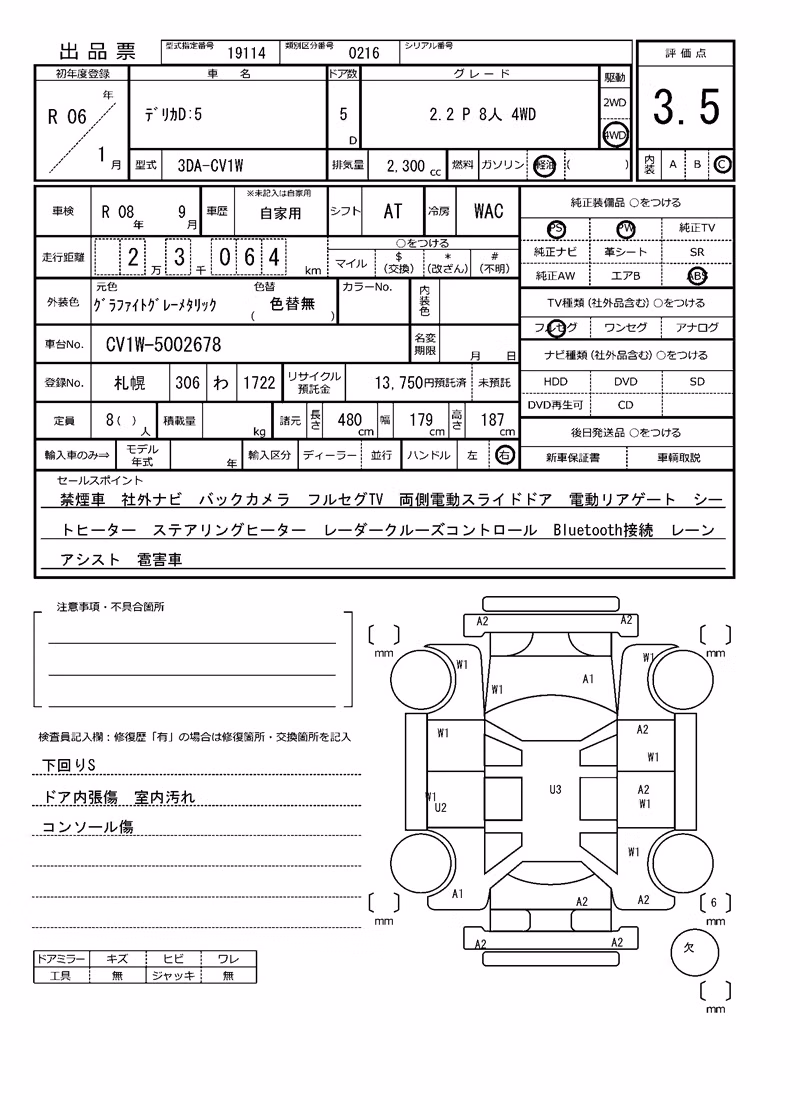 出品票 型式指定番号 19114 類別区分番号 0216 シリアル番号
評価点
3.5
内装 A B C
初年度登録 車名 ドア数 グレード 駆動
R 06 年 1 月 デリカD:5 5 D 2.2 P 8人 4WD 2WD 4WD
型式 3DA-CV1W 排気量 2,300 cc 燃料 ガソリン 軽油 ( )
車検 R 08 年 9 月 車歴 ※未記入は自家用 自家用 シフト AT 冷房 WAC
走行距離 2 万 3 千 0 6 4 km ○をつける
マイル $(交換) *(改ざん) #(不明)
外装色 元色 グラファイトグレーメタリック 色替 ( 色替無 ) カラーNo. 内装色
車台No. CV1W-5002678 名変期限 月 日
登録No. 札幌 306 わ 1722 リサイクル預託金 13,750円預託済 未預託
定員 8( )人 積載量 kg 諸元 長さ 480cm 幅 179cm 高さ 187cm
輸入車のみ⇒ モデル年式 年 輸入区分 ディーラー 並行 ハンドル 左 右
純正装備品 ○をつける
PS PW 純正TV
純正ナビ 革シート SR
純正AW エアB ABS
TV種類(社外品含む)○をつける
フルセグ ワンセグ アナログ
ナビ種類(社外品含む)○をつける
HDD DVD SD
DVD再生可 CD
後日発送品 ○をつける
新車保証書 車輌取説
セールスポイント
禁煙車 社外ナビ バックカメラ フルセグTV 両側電動スライドドア 電動リアゲート シー
トヒーター ステアリングヒーター レーダークルーズコントロール Bluetooth接続 レーン
アシスト 雹害車
注意事項・不具合箇所
検査員記入欄:修復歴「有」の場合は修復箇所・交換箇所を記入
下回りS
ドア内張傷 室内汚れ
コンソール傷
ドアミラー キズ ヒビ ワレ
工具 無 ジャッキ 無
A2 A2
mm mm
W1 W1
W1 A1
W1 A2
W1
U3
W1 A2
U2 W1
W1
A1 A2 A2
6
mm mm
A2 A2
欠
mm